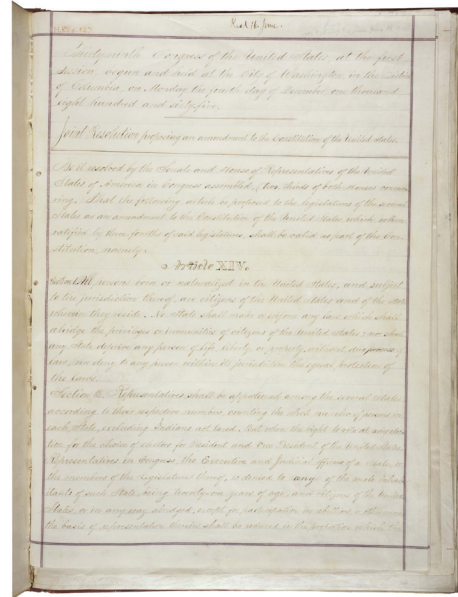 Recd 16 June.
Thirty-ninth Congress of the United States, at the first
session, begun and held at the City of Washington, in the District
of Columbia, on Monday the fourth day of December, one thousand
eight hundred and sixty-five.
Joint Resolution proposing an amendment to the Constitution of the United States.
Be it resolved by the Senate and House of Representatives of the United
States of America in Congress assembled, (two thirds of both Houses concur-
ring,) That the following article be proposed to the legislatures of the several
States as an amendment to the Constitution of the United States, which, when
ratified by three fourths of said legislatures, shall be valid as part of the Con-
stitution, namely:
Article XIV.
Section 1. All persons born or naturalized in the United States, and subject
to the jurisdiction thereof, are citizens of the United States and of the State
wherein they reside. No State shall make or enforce any law which shall
abridge the privileges or immunities of citizens of the United States; nor shall
any State deprive any person of life, liberty, or property, without due process of
law; nor deny to any person within its jurisdiction the equal protection of
the laws.
Section 2. Representatives shall be apportioned among the several States
according to their respective numbers, counting the whole number of persons in
each State, excluding Indians not taxed. But when the right to vote at any elec-
tion for the choice of electors for President and Vice President of the United States,
Representatives in Congress, the Executive and Judicial officers of a State, or
the members of the Legislature thereof, is denied to any of the male inhabi-
tants of such State, being twenty-one years of age, and citizens of the United
States, or in any way abridged, except for participation in rebellion, or other crime,
the basis of representation therein shall be reduced in the proportion which the